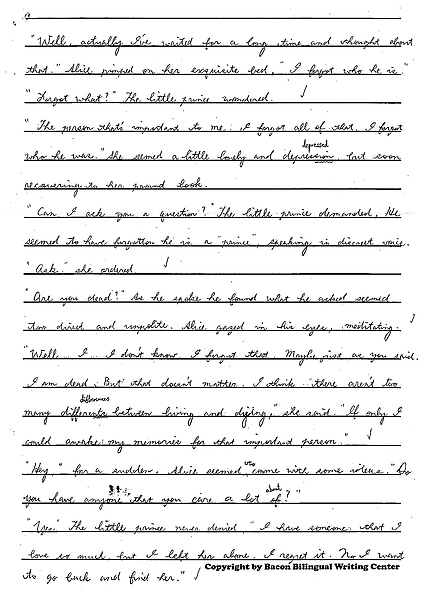 "Well, actually I've waited for a long time and thought about
that." Alice pimped on her exquisite bed, "I forgot who he is."
"Forgot what?" The little prince wondered.
"The person that's important to me; I forgot all of that. I forgot
depressed
who he was." She semed a little lonely and depression, but soon
recovering to her pround look.
"Can I ask you a question?" The little prince demanded. He
seemed to have forgotten he is a "prince", speaking in discreet voice.
"Ask." she ordered.
"Are you dead?" As he spoke he found what he asked seemed
too direct and impolite. Alice gazed in his eyes, meditating.
"Well... I... I don't know. I forgot that. Maybe, just as you said,
I am dead. But that doesn't matter. I think there aren't too
differences
many differents between living and dying," she said. "If only I
could awake my memories for that important person."
"Hey," for a sudden, Alice seemed to come with some idea. "Do
about
you have anyone that you care a lot of?"
"Yes." The little prince never denied, "I have someone that I
love so much, but I left her alone. I regret it. No I want
to go back and find her."
Copyright by Bacon Bilingual Writing Center